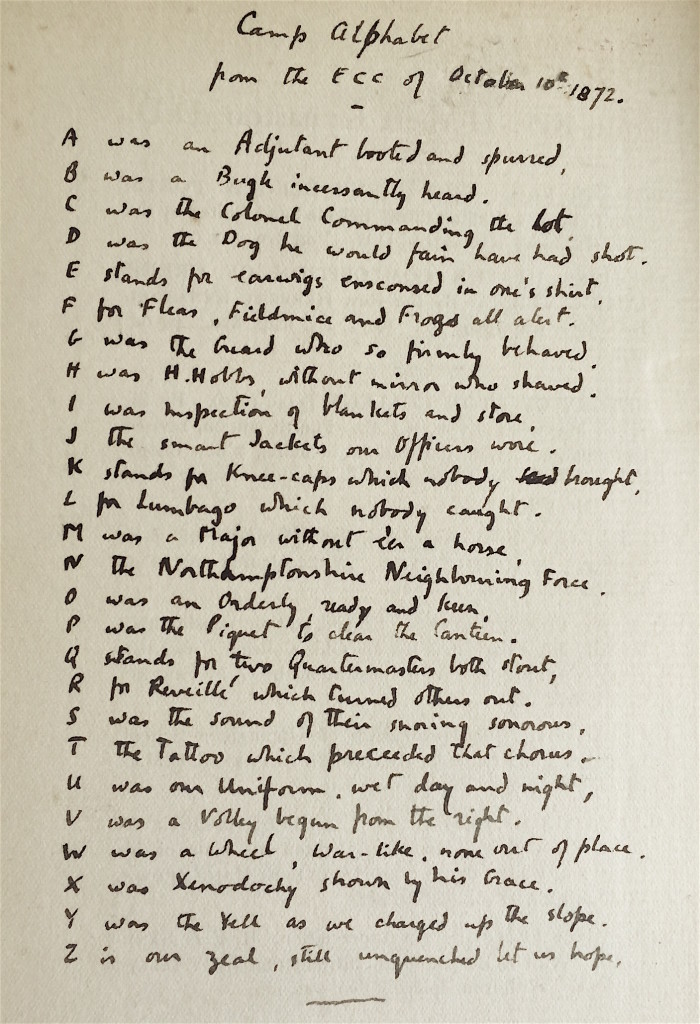 Camp Alphabet
from the ECC of October 10th 1872.
A was an Adjutant booted and spurred,
B was a Bugle incessantly heard.
C was the Colonel Commanding the lot,
D was the Dog he would fain have had shot.
E stands for earwigs ensconsed in one's shirt,
F for Fleas, Fieldmice and Frogs all alert.
G was the Guard who so firmly behaved,
H was H. Hobbs, without mirror who shaved.
I was Inspection of blankets and store,
J the smart Jackets our Officers wore.
K stands for Knee-caps which nobody brought,
L for Lumbago which nobody caught.
M was a Major without e'er a horse,
N the Northamptonshire Neighbouring Force.
O was an Orderly, ready and keen,
P was the Piquet to clear the Canteen.
Q stands for two Quartermasters both stout,
R for Reveillé which turned others out.
S was the sound of their snoring sonorous,
T the Tattoo which preceeded that chorus.
U was our Uniform, wet day and night,
V was a Volley begun from the right.
W was a Wheel, War-like, none out of place.
X was Xenodochy shown by his Grace.
Y was the Yell as we charged up the slope.
Z is our zeal, still unquenched let us hope.